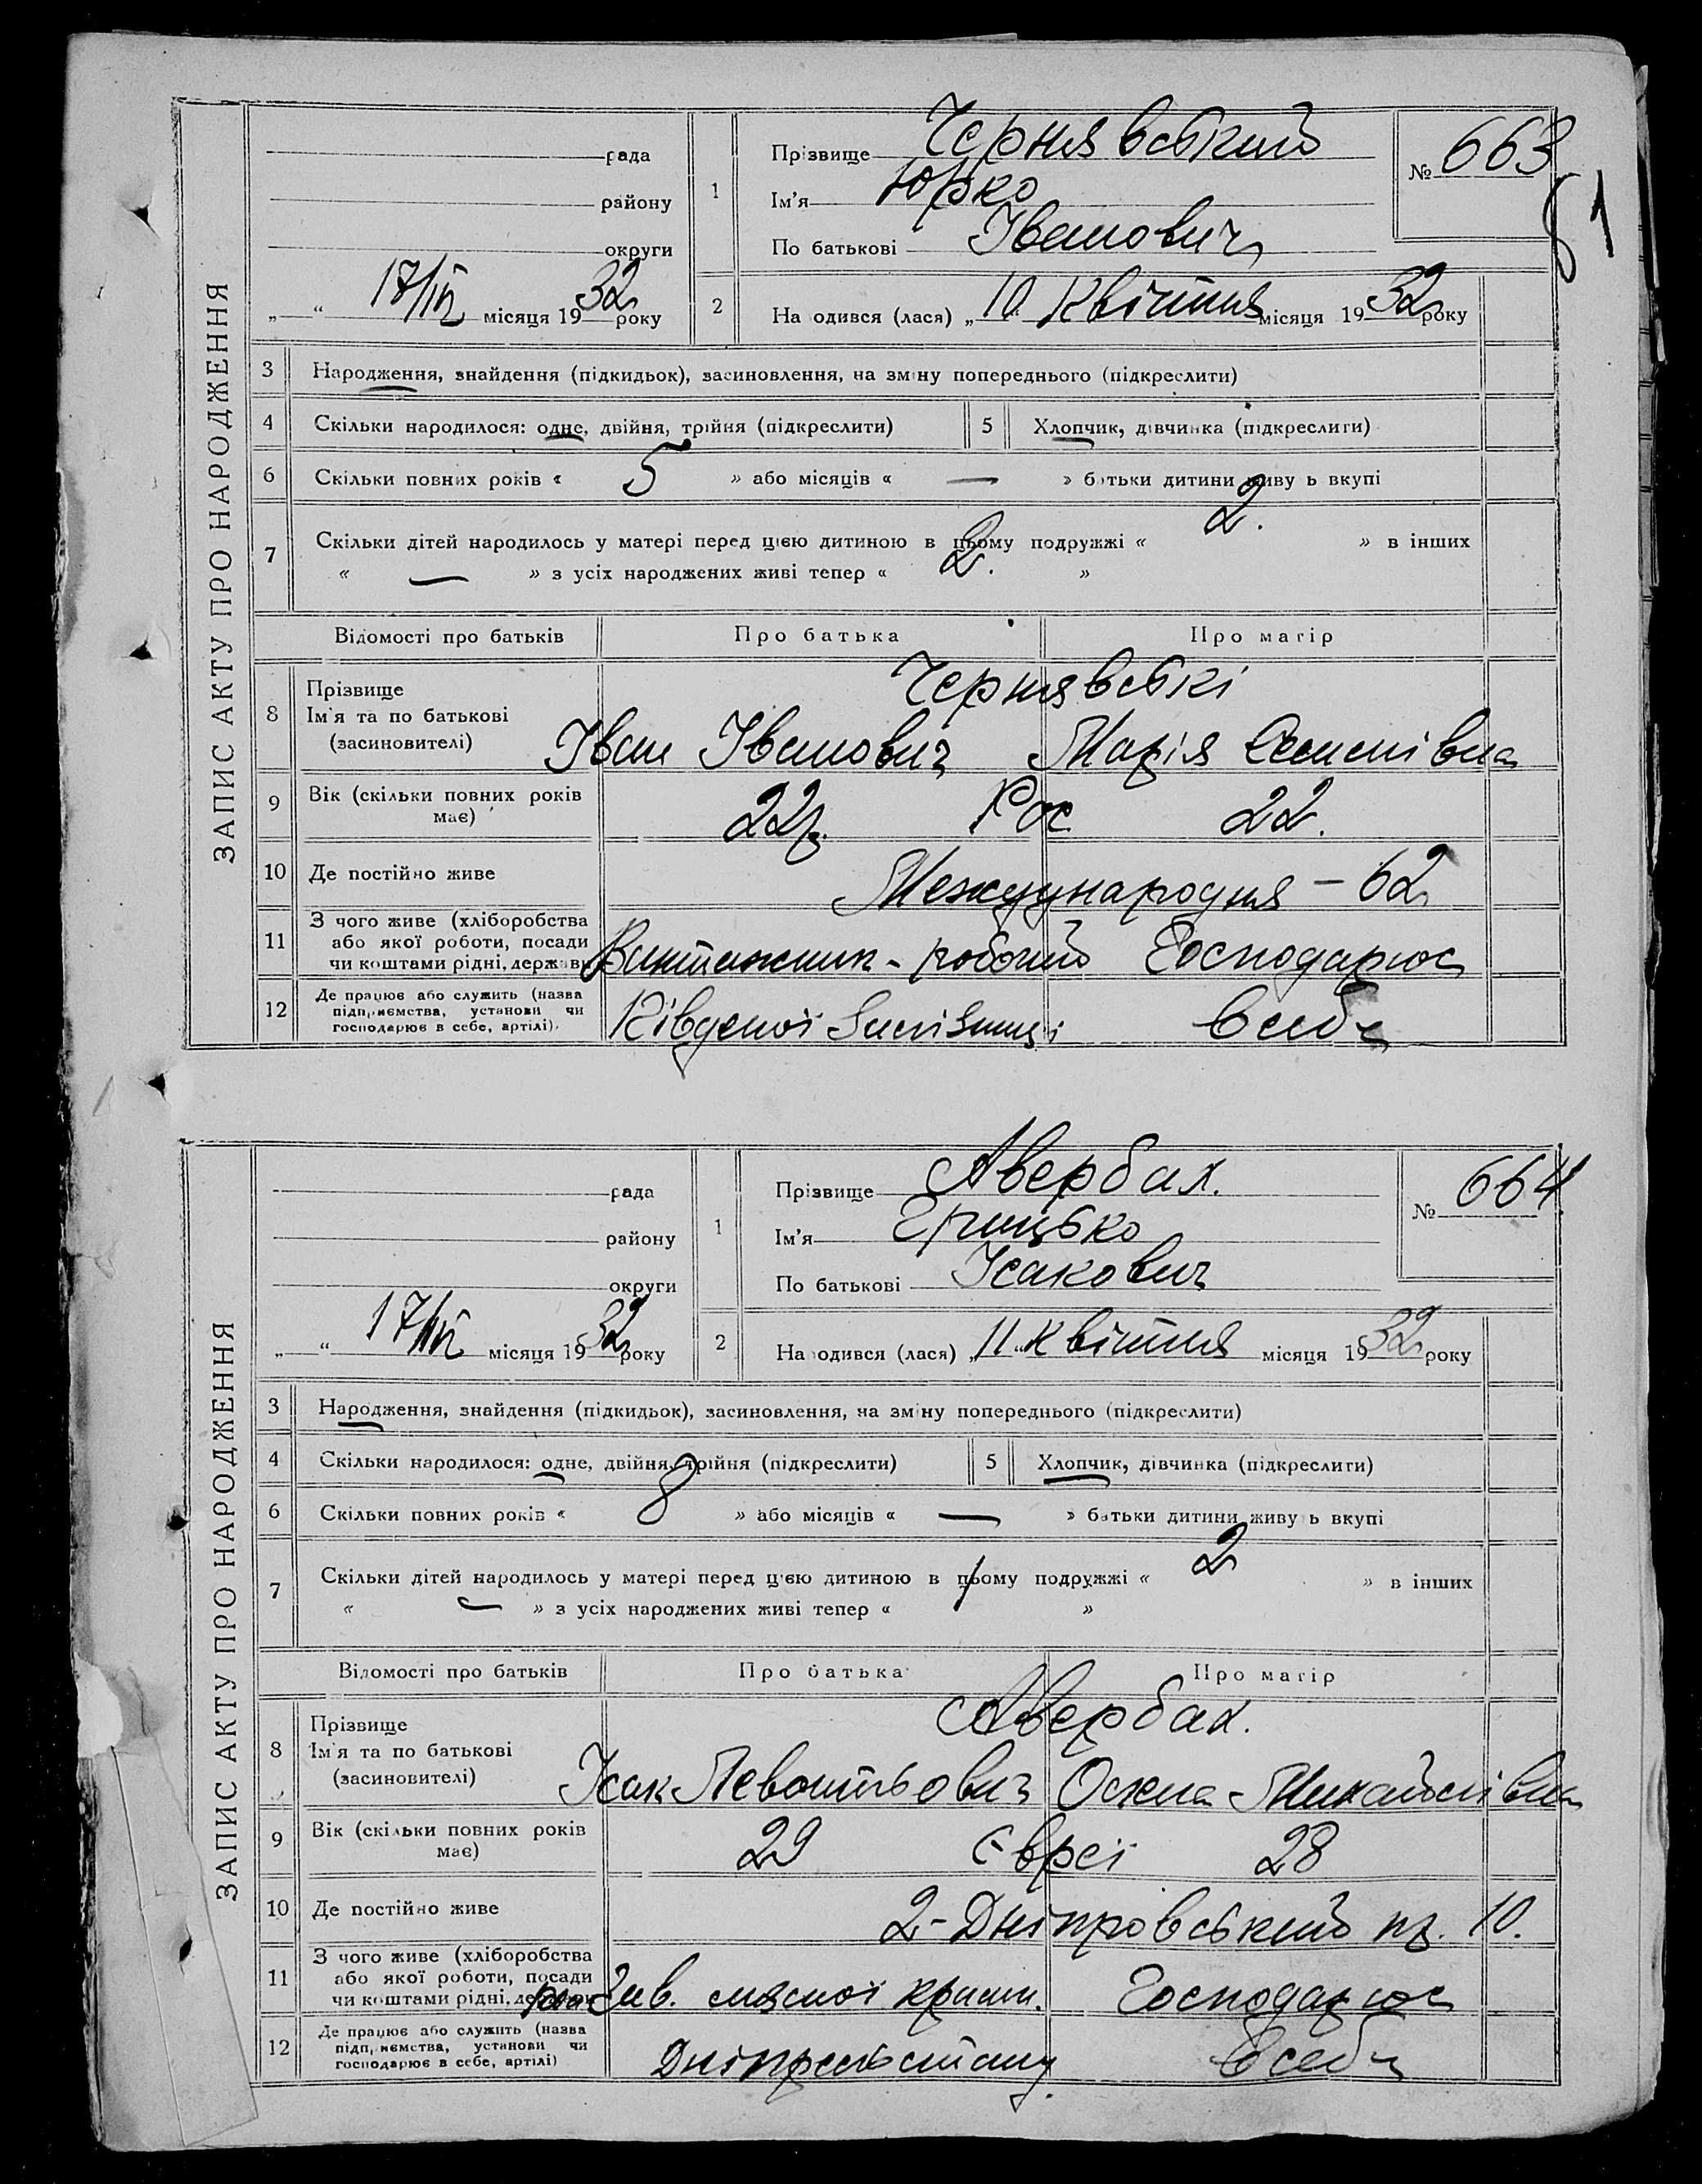 ЗАПИС АКТУ ПРО НАРОДЖЕННЯ
рада
району
округи
„ “ 17/IV місяця 1932 року
1 Прізвище Чернявський
Ім'я Юрко
По батькові Іванович
№ 663
81
2 На одився (лася) „10 Квітня місяця 1932 року
3 Народження, знайдення (підкидьок), засиновлення, на зміну попереднього (підкреслити)
4 Скільки народилося: одне, двійня, трійня (підкреслити) 5 Хлопчик, дівчинка (підкреслити)
6 Скільки повних років « 5 » або місяців « — » батьки дитини живу ь вкупі
7 Скільки дітей народилось у матері перед цією дитиною в цьому подружжі « 2. » в інших
« — » з усіх народжених живі тепер « 2. »
Відомості про батьків Про батька Про матір
8 Прізвище
Ім'я та по батькові
(засиновителі)
Чернявські
Іван Іванович Марія Семенівна
9 Вік (скільки повних років має) 22р. Рос 22.
10 Де постійно живе Международня – 62
11 З чого живе (хліборобства
або якої роботи, посади
чи коштами рідні, держави
Вантажник - робочий Господарює
12 Де працює або служить (назва
підприємства, установи чи
господарює в себе, артілі)
Південої Залізниці в себе
ЗАПИС АКТУ ПРО НАРОДЖЕННЯ
рада
району
округи
„ “ 17/IV місяця 1932 року
1 Прізвище Авербах.
Ім'я Грицько
По батькові Ісакович
№ 664
2 На одився (лася) „11 Квітня місяця 1932 року
3 Народження, знайдення (підкидьок), засиновлення, на зміну попереднього (підкреслити)
4 Скільки народилося: одне, двійня, трійня (підкреслити) 5 Хлопчик, дівчинка (підкреслити)
6 Скільки повних років « 8 » або місяців « — » батьки дитини живу ь вкупі
7 Скільки дітей народилось у матері перед цією дитиною в цьому подружжі « 2 » в інших
« — » з усіх народжених живі тепер « 1 »
Відомості про батьків Про батька Про матір
8 Прізвище
Ім'я та по батькові
(засиновителі)
Авербах.
Ісак Михайлівна
9 Вік (скільки повних років має) 29 Євреї 28
10 Де постійно живе 2-Дніпровський пр. 10.
11 З чого живе (хліборобства
або якої роботи, посади
чи коштами рідні, держави
Зав. мясної крамн. Господарює
12 Де працює або служить (назва
підприємства, установи чи
господарює в себе, артілі)
Дніпрельстану. в себе